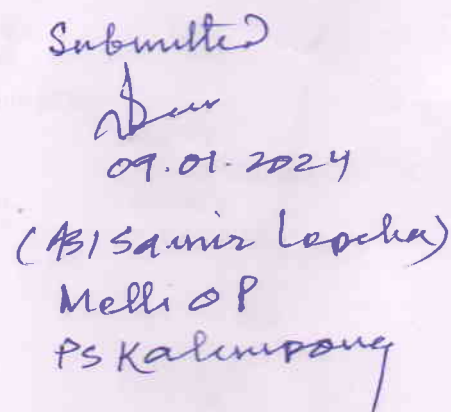 Submitted
09.01.2024
(ASI Samir Lepcha)
Melli OP
PS Kalimpong